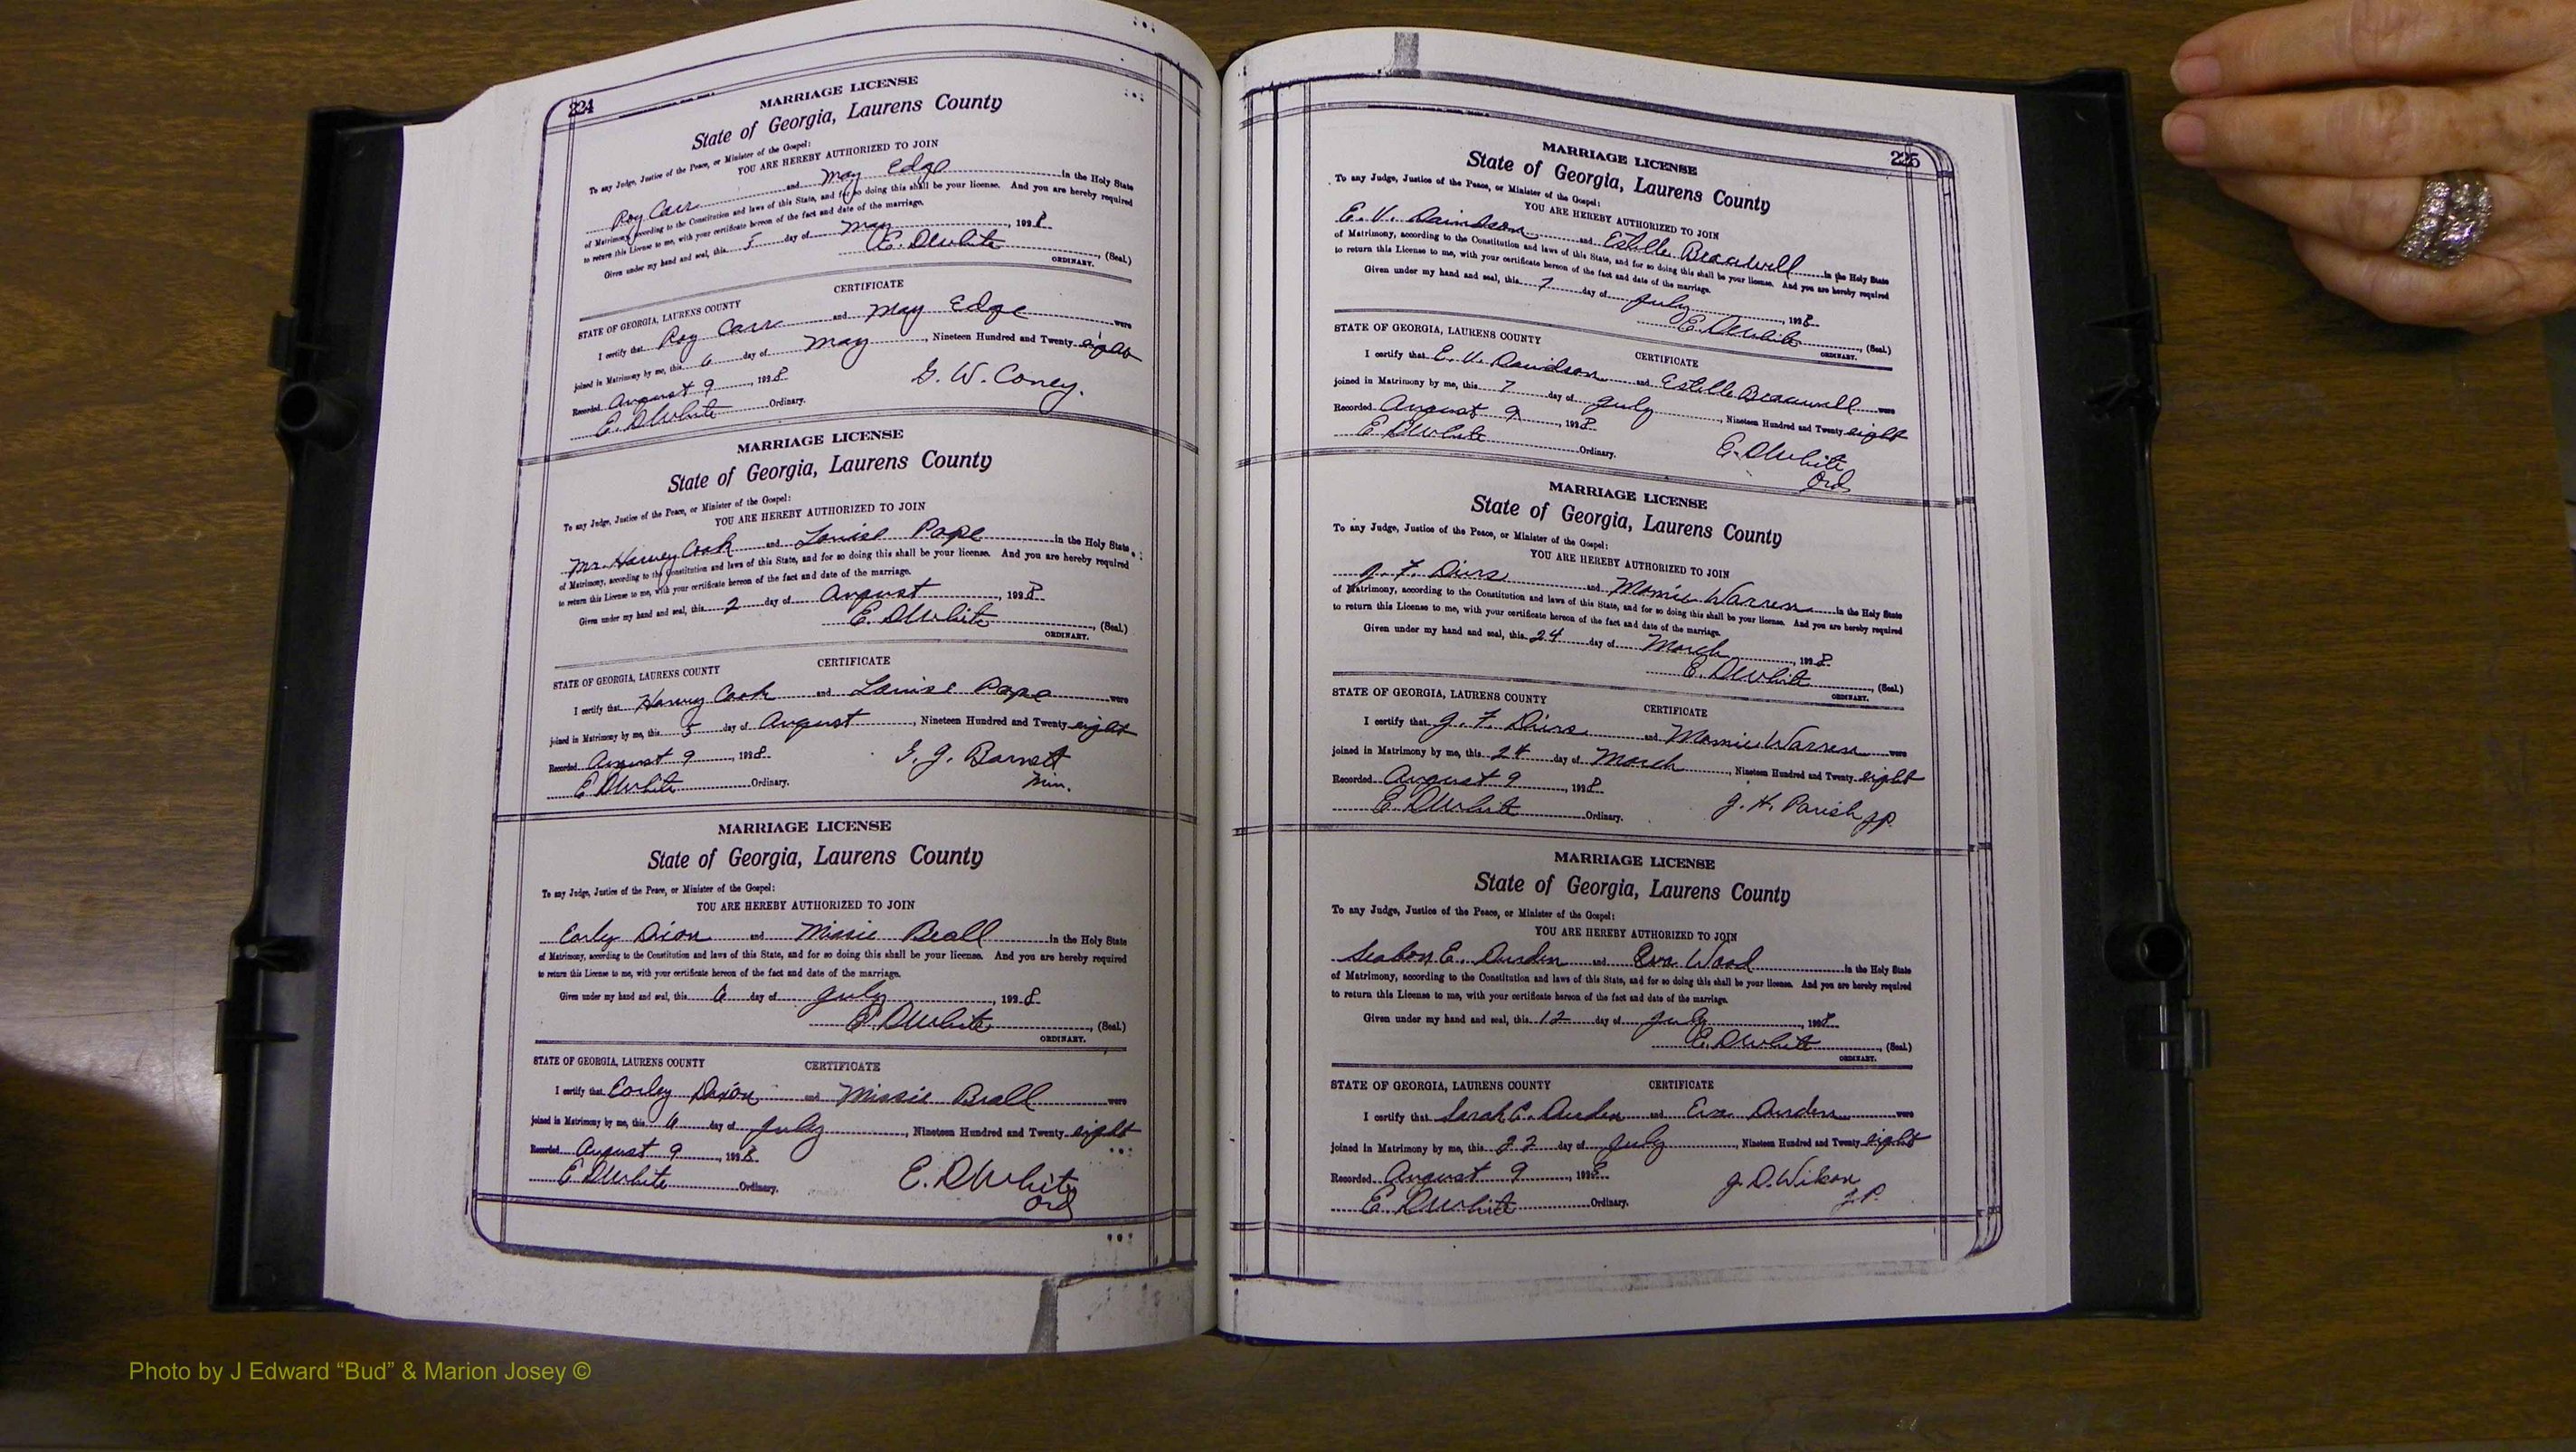 224
MARRIAGE LICENSE
State of Georgia, Laurens County
To any Judge, Justice of the Peace, or Minister of the Gospel:
YOU ARE HEREBY AUTHORIZED TO JOIN
Roy Carr and May Edge in the Holy State
of Matrimony, according to the Constitution and laws of this State, and for so doing this shall be your license. And you are hereby required
to return this License to me, with your certificate hereon of the fact and date of the marriage.
Given under my hand and seal, this 5 day of May, 1928
E. D White, (Seal.)
ORDINARY.
CERTIFICATE
STATE OF GEORGIA, LAURENS COUNTY
I certify that Roy Carr and May Edge were
joined in Matrimony by me, this 6 day of May, Nineteen Hundred and Twenty eight
Recorded August 9, 1928
G. W. Coney.
E. D White Ordinary.
MARRIAGE LICENSE
State of Georgia, Laurens County
To any Judge, Justice of the Peace, or Minister of the Gospel:
YOU ARE HEREBY AUTHORIZED TO JOIN
Mr. Harvey Cook and Louise Pope in the Holy State
of Matrimony, according to the Constitution and laws of this State, and for so doing this shall be your license. And you are hereby required
to return this License to me, with your certificate hereon of the fact and date of the marriage.
Given under my hand and seal, this 2 day of August, 1928
E. D White, (Seal.)
ORDINARY.
CERTIFICATE
STATE OF GEORGIA, LAURENS COUNTY
I certify that Harvey Cook and Louise Pope were
joined in Matrimony by me, this 5 day of August, Nineteen Hundred and Twenty eight
Recorded August 9, 1928
Barnett
Min.
E D White Ordinary.
MARRIAGE LICENSE
State of Georgia, Laurens County
To any Judge, Justice of the Peace, or Minister of the Gospel:
YOU ARE HEREBY AUTHORIZED TO JOIN
Early Dixon and Missie Beall in the Holy State
of Matrimony, according to the Constitution and laws of this State, and for so doing this shall be your license. And you are hereby required
to return this License to me, with your certificate hereon of the fact and date of the marriage.
Given under my hand and seal, this 6 day of July, 1928
E. D White, (Seal.)
ORDINARY.
STATE OF GEORGIA, LAURENS COUNTY
CERTIFICATE
I certify that Earley Dixon and Missie Beall were
joined in Matrimony by me, this 6 day of July, Nineteen Hundred and Twenty eight
Recorded August 9, 1928
E D White Ordinary.
E. D White
Ord
225
MARRIAGE LICENSE
State of Georgia, Laurens County
To any Judge, Justice of the Peace, or Minister of the Gospel:
YOU ARE HEREBY AUTHORIZED TO JOIN
E. V. Davidson and Estelle Braswell in the Holy State
of Matrimony, according to the Constitution and laws of this State, and for so doing this shall be your license. And you are hereby required
to return this License to me, with your certificate hereon of the fact and date of the marriage.
Given under my hand and seal, this 7 day of July, 1928
E. D White, (Seal.)
ORDINARY.
STATE OF GEORGIA, LAURENS COUNTY
CERTIFICATE
I certify that E. V. Davidson and Estelle Braswell were
joined in Matrimony by me, this 7 day of July, Nineteen Hundred and Twenty eight
Recorded August 9, 1928
E D White Ordinary.
E. D White
Ord
MARRIAGE LICENSE
State of Georgia, Laurens County
To any Judge, Justice of the Peace, or Minister of the Gospel:
YOU ARE HEREBY AUTHORIZED TO JOIN
J. F. and Mamie Warren in the Holy State
of Matrimony, according to the Constitution and laws of this State, and for so doing this shall be your license. And you are hereby required
to return this License to me, with your certificate hereon of the fact and date of the marriage.
Given under my hand and seal, this 24 day of March, 1928
E. D White, (Seal.)
ORDINARY.
STATE OF GEORGIA, LAURENS COUNTY
CERTIFICATE
I certify that J. F. and Mamie Warren were
joined in Matrimony by me, this 24 day of March, Nineteen Hundred and Twenty eight
Recorded August 9, 1928
E. D White Ordinary.
J. H. Parish JP.
MARRIAGE LICENSE
State of Georgia, Laurens County
To any Judge, Justice of the Peace, or Minister of the Gospel:
YOU ARE HEREBY AUTHORIZED TO JOIN
Seabon E. Durden and Eva Wood in the Holy State
of Matrimony, according to the Constitution and laws of this State, and for so doing this shall be your license. And you are hereby required
to return this License to me, with your certificate hereon of the fact and date of the marriage.
Given under my hand and seal, this 12 day of July, 1928
E. D White, (Seal.)
ORDINARY.
STATE OF GEORGIA, LAURENS COUNTY
CERTIFICATE
I certify that Sarah E. Durden and Eva Durden were
joined in Matrimony by me, this 22 day of July, Nineteen Hundred and Twenty eight
Recorded August 9, 1928
J. D. Wilson
J.P.
E. D White Ordinary.
Photo by J Edward “Bud” & Marion Josey ©